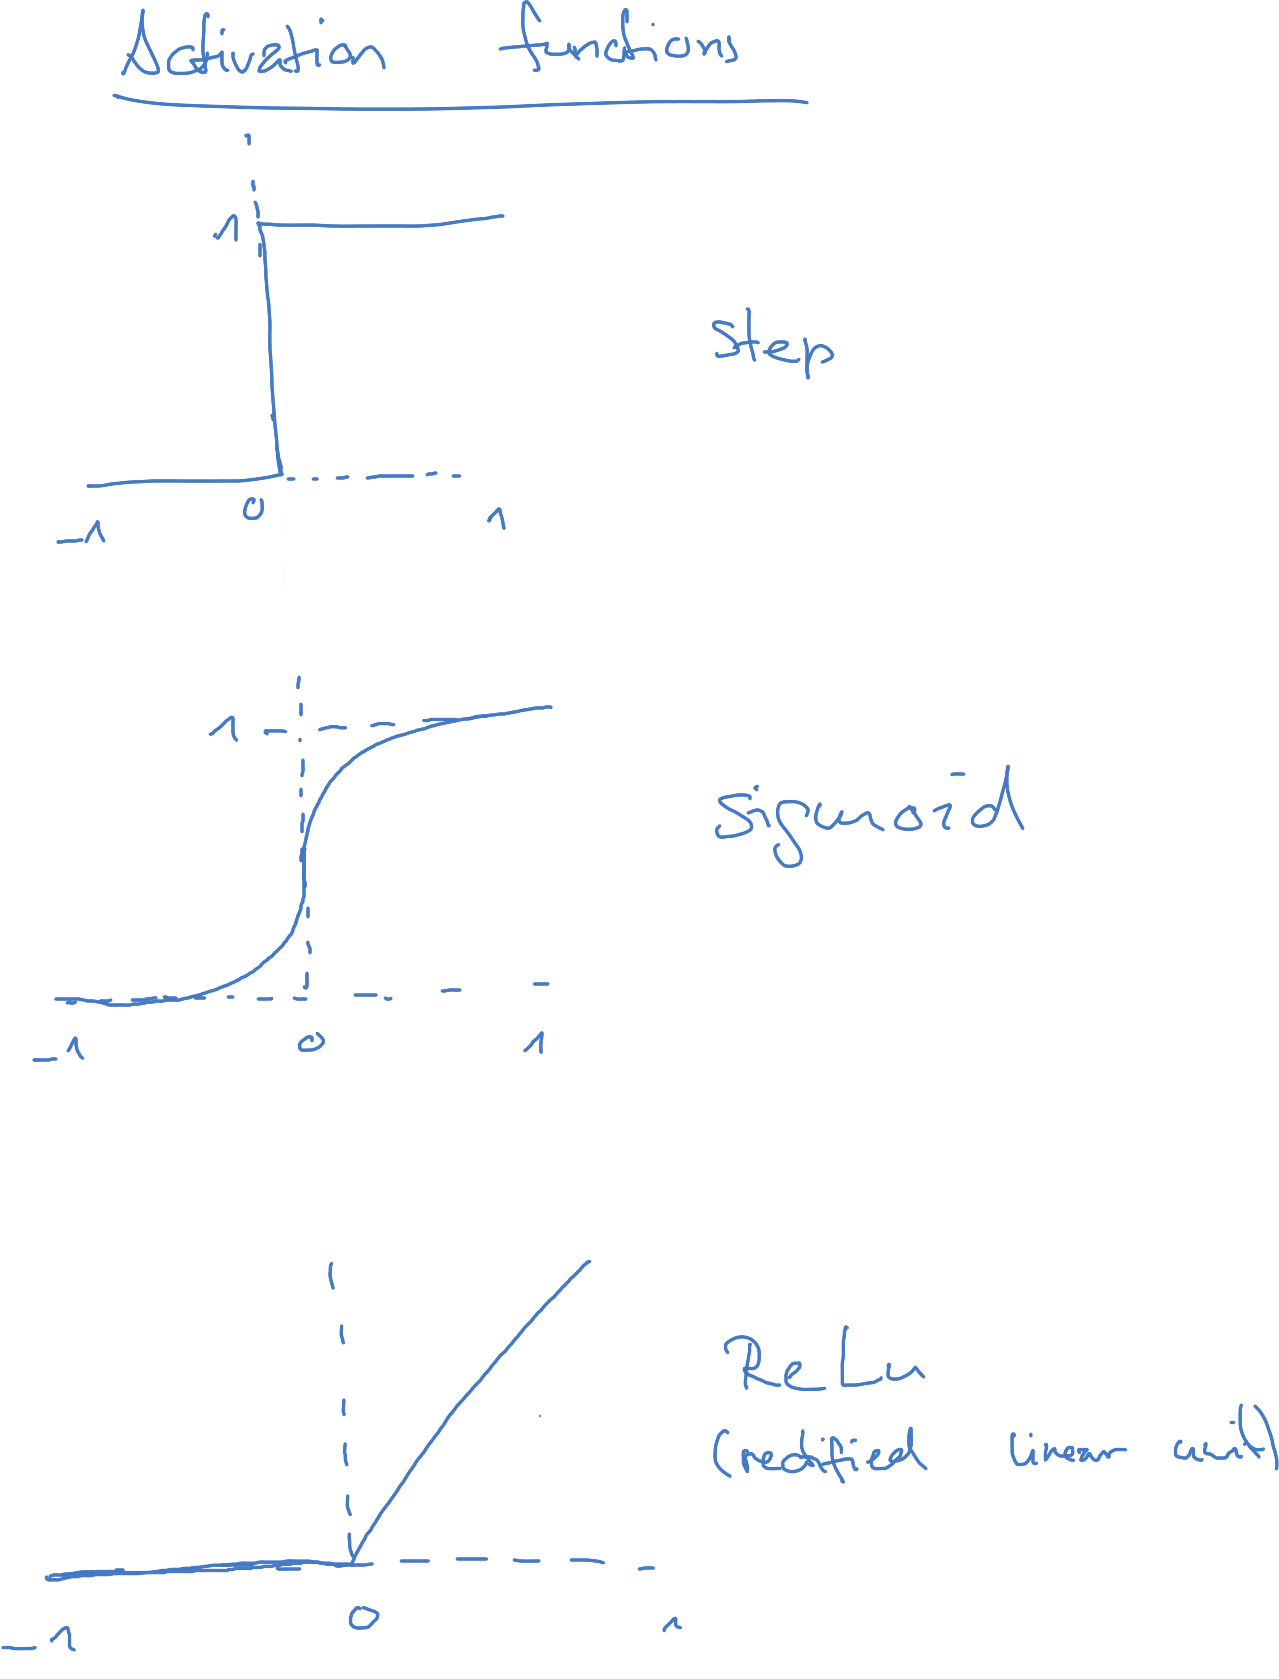 Activation functions
1
step
-1 0 1
1
sigmoid
-1 0 1
ReLu
(rectified linear unit)
-1 0 1